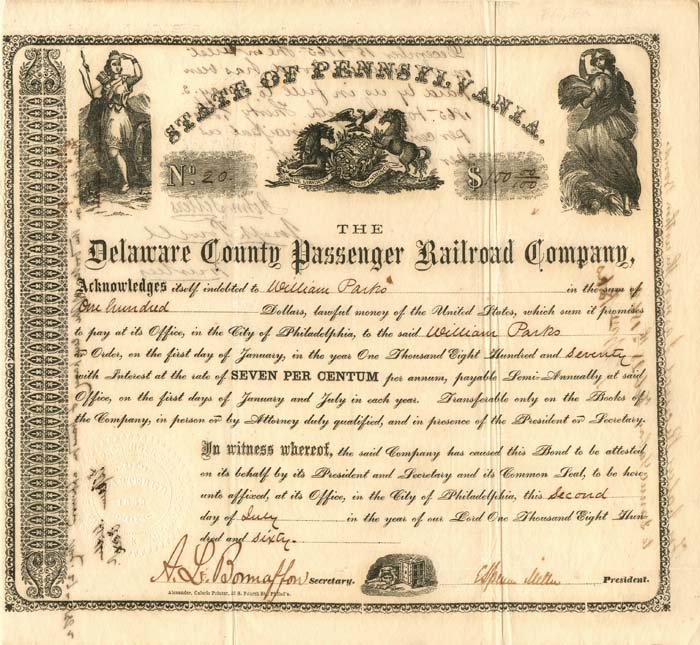 STATE OF PENNSYLVANIA.
No. 20.
$100 00/100
THE
Delaware County Passenger Railroad Company,
Acknowledges itself indebted to William Parks in the sum of
One hundred Dollars, lawful money of the United States, which sum it promises
to pay at its Office, in the City of Philadelphia, to the said William Parks
or Order, on the first day of January, in the year One Thousand Eight Hundred and Seventy
with Interest at the rate of SEVEN PER CENTUM per annum, payable Semi-Annually at said
Office, on the first days of January and July in each year. Transferable only on the Books of
the Company, in person or by Attorney duly qualified, and in presence of the President or Secretary.
In witness whereof, the said Company has caused this Bond to be attested
on its behalf by its President and Secretary and its Common Seal, to be here
unto affixed, at its Office, in the City of Philadelphia, this Second
day of July in the year of our Lord One Thousand Eight Hun
dred and sixty.
A. L. Bonnaffon Secretary.
President.
Alexander, Caloric Printer, S. Fourth St., Philad'a.